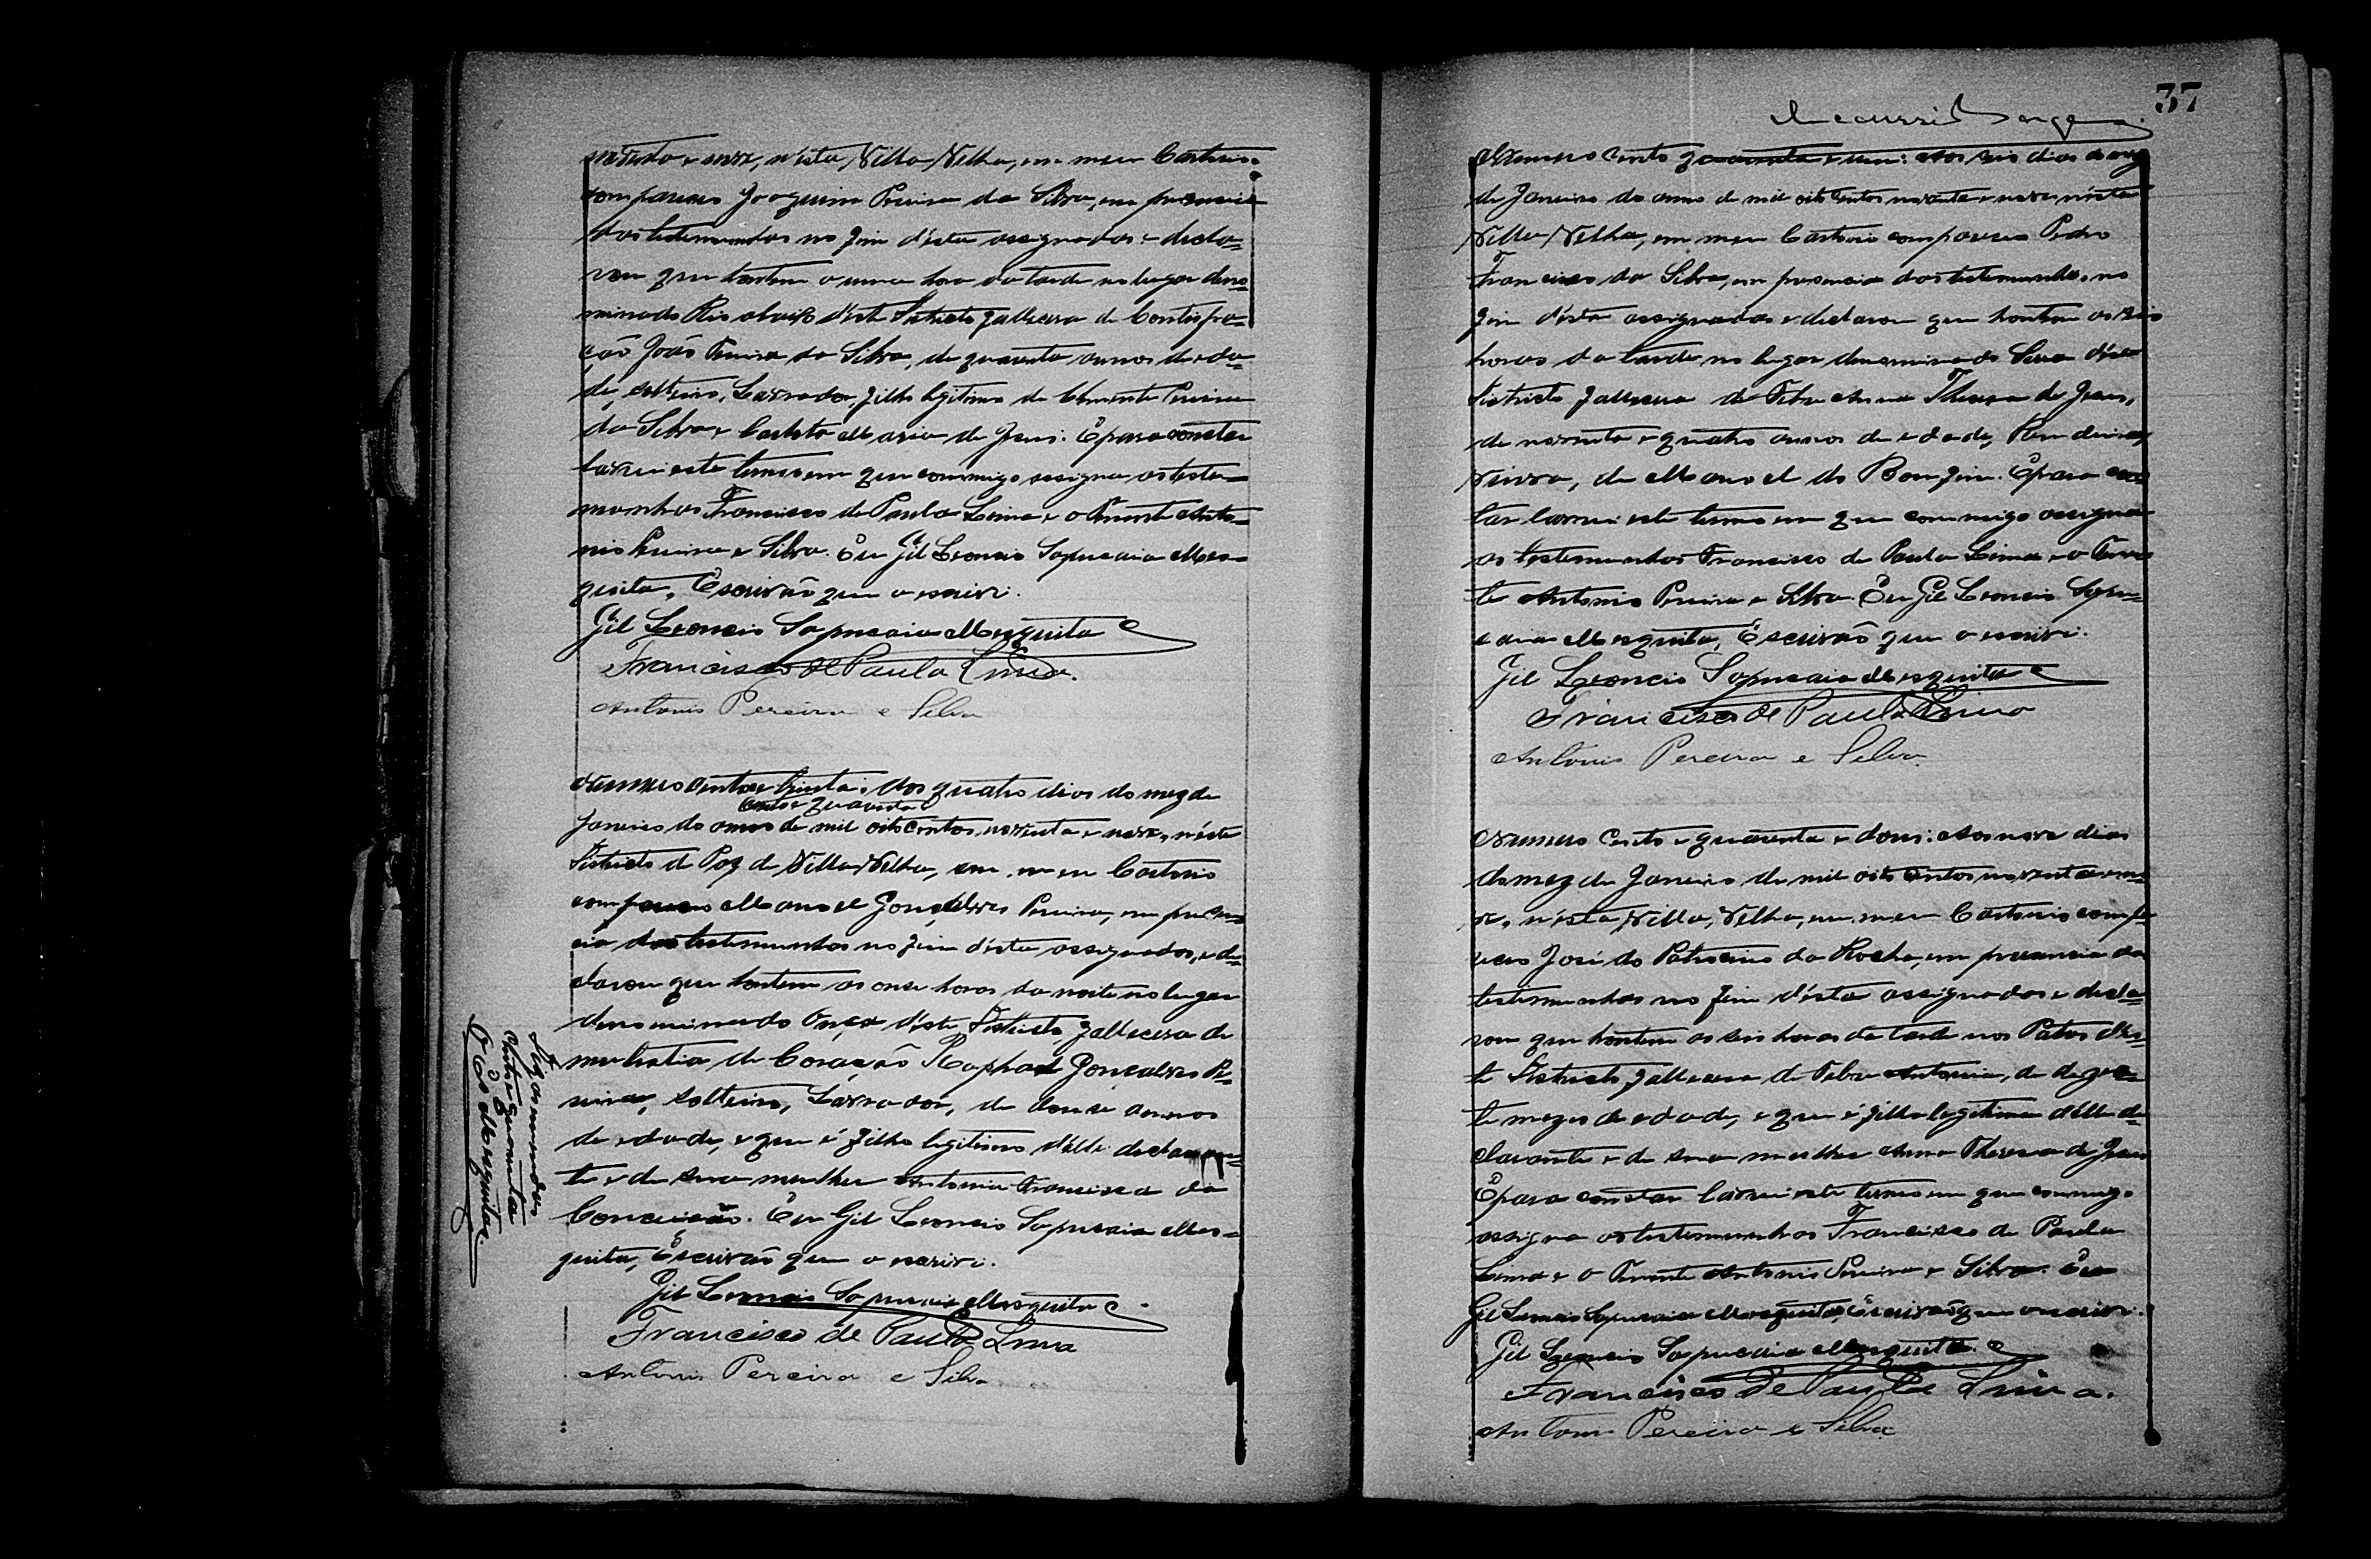 noventa e nove, n'esta Villa Velha, em meu Cartorio
compareceu Joaquim Pereira da Silva, em presencia
das testemunhas no fim d'esta assignadas e decla=
rou que hontem a uma hora da tarde no lugar deno=
minado Rio abaixo d'este Districto falleceu de
ção João Pereira da Silva, de quarenta annos de eda=
de, solteiro, Lavrador, filho legitimo de Clemente Pereira
da Silva e Maria de Jesus. E para constar
lavrei este termo em que commigo assigna as teste=
munhas Francisco de Paula Lima e o Tenente Anto=
nio Pereira e Silva. Eu Gil Leoncio Sapucaia Mes=
quita, Escrivão que o escrivi.
Gil Leoncio Sapucaia Mesquita
Francisco de Paula Lima.
Antonio Pereira e Silva
Numero cento e trinta: Aos quatro dias do mez de
cento e quarenta
Janeiro do anno de mil oitocentos noventa e nove, n'este
Districto de Paz de Villa Velha, em meu Cartorio
compareceu Manoel Gonçalves Pereira, em presen=
cia das testemunhas no fim d'esta assignadas, e de=
clarou que hontem as onze horas da noite no lugar
denominado Onça d'este Districto, falleceu de
molestia de Coração Raphael Gonçalves Pe=
reira, solteiro, Lavrador, de annos
de edade, e que é filho legitimo d'elle declaran=
te e de sua mulher Antonia Francisca da
Conceição. Eu Gil Leoncio Sapucaia Mes=
quita, Escrivão que o escrivi.
Gil Leoncio Sapucaia Mesquita
Francisco de Paula Lima
Antonio Pereira e Silva
Digo numero
cento e quarenta
Mesquita
37
Numero cento quarenta e um: Aos seis dias do mez
de Janeiro do anno de mil oitocentos noventa e nove n'esta
Villa Velha, em meu Cartorio compareceu Pedro
Francisco da Silva, em presencia das testemunhas no
fim d'esta assignadas e declarou que hontem as seis
horas da tarde no lugar denominado Serra d'este
Districto falleceu de Febre Anna Thereza de Jesus,
de noventa e quatro annos de edade,
Viuva, de Manoel do Bomfim. E para cons
tar lavrei este termo em que commigo assigna
as testemunhas Francisco de Paula Lima e o Tenen
te Antonio Pereira e Silva. Eu Gil Leoncio Sapu=
caia Mesquita, Escrivão que o escrivi.
Gil Leoncio Sapucaia Mesquita
Francisco de Paula Lima
Antonio Pereira e Silva.
Numero Cento e quarenta e dous: Aos nove dias
do mez de Janeiro de mil oito centos noventa e no=
ve, n'esta Villa Velha, em meu Cartorio compa
receu José do Patrocinio da Rocha, em presencia das
testemunhas no fim d'esta assignadas e decla=
rou que hontem as seis horas da tarde nos Patos d'es=
te Districto, falleceu de Febre Antonia, de deze=
te mezes de edade, e que é filha legitima d'elle de=
clarante e de sua mulher Anna Thereza de Jesus
E para constar lavrei este termo em que commigo
assigna as testemunhas Francisco de Paula
Lima e o Tenente Antonio Pereira e Silva. Eu
Gil Leoncio Sapucaia Mesquita, Escrivão que o escrivi.
Gil Leoncio Sapucaia Mesquita.
Francisco de Paula Lima.
Antonio Pereira e Silva